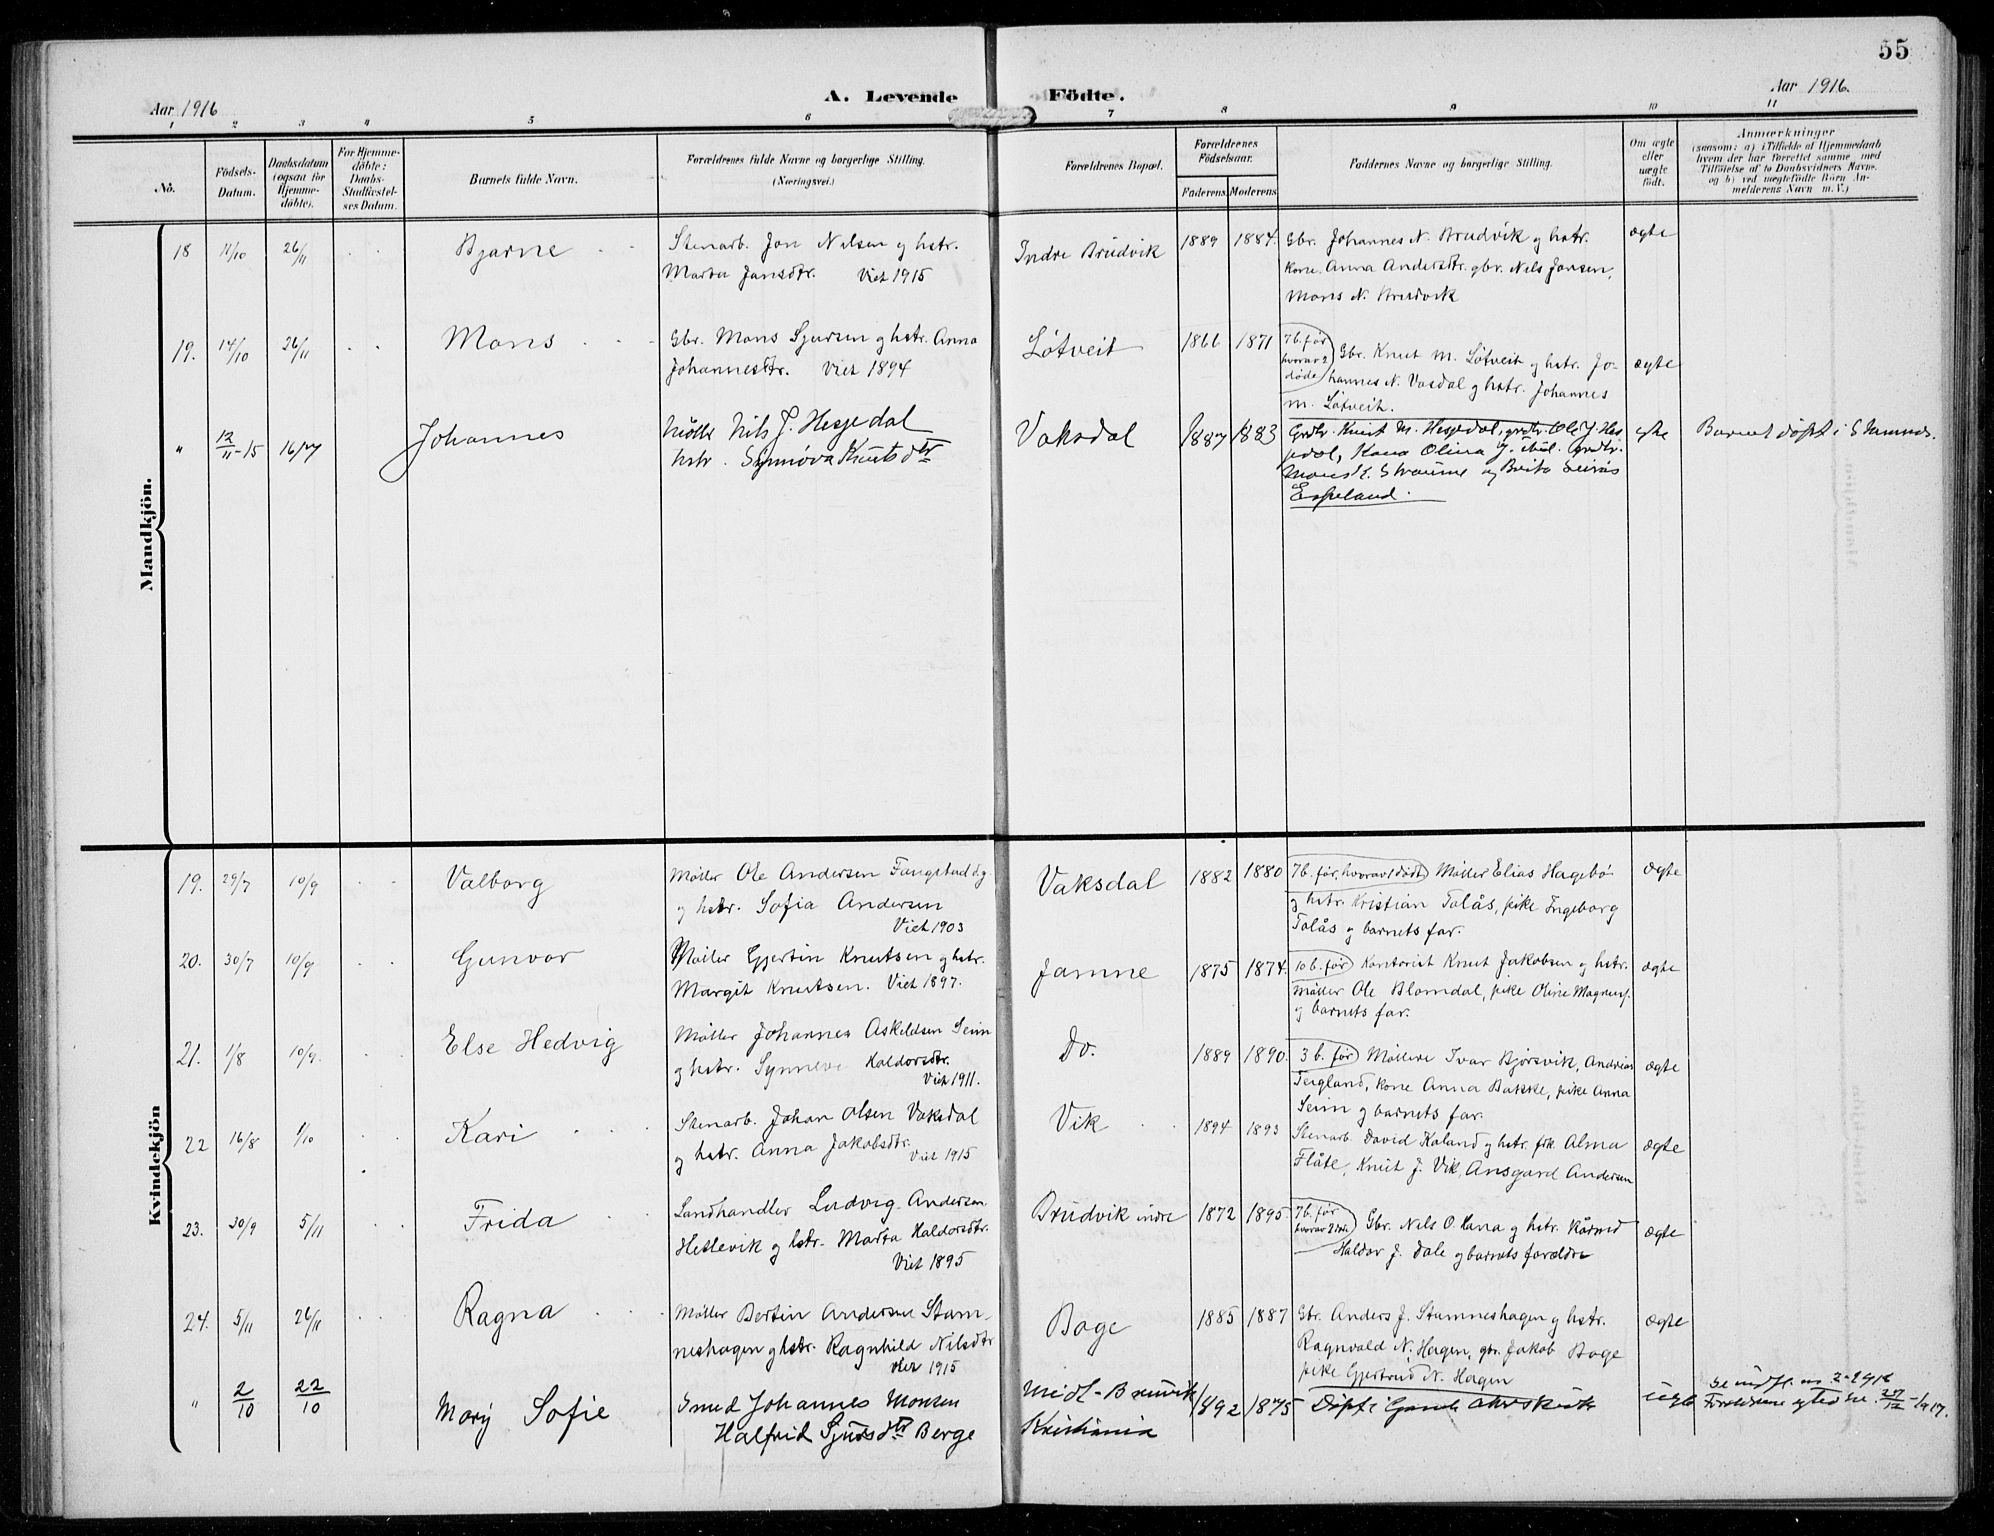 55
Aar 1916
A. Levende Födte.
Aar 1916.
1 2 3 4 5 6 7 8 9 10 11
No.
Födsels-
Datum.
Daabsdatum
(ogsaa for
Hjemme-
döbte).
For Hjemme-
döbte:
Daabs-
Stadfæstel-
ses Datum.
Barnets fulde Navn.
Forældrenes fulde Navne og borgerlige Stilling.
(Næringsvei.)
Forældrenes Bopæl.
Forældrenes
Födselsaar.
Faderens Moderens
Faddernes Navne og borgerlige Stilling.
Om ægte
eller
uægte
födt.
Anmærkninger
(saasom: a) i Tilfælde af Hjemmedaab
hvem der har forrettet samme med
Tilföielse af to Daabsvidners Navne.
og b) ved uægtefödte Börn An-
melderens Navn m. V.)
Mandkjön.
18 11/10 26/11 Bjarne
Stenarb. Jon Nilsen og hstr.
Marta Jansdtr. Viet 1915
Indre Brudvik 1889 1884.
Gbr. Johannes N. Brudvik og hstr.
kone Anna Andersdtr. gbr. Nils Jonsen,
Mons N. Brudvik
ægte
19. 14/10 26/11 Mons
Gbr. Mons Sjursen og hstr. Anna
Johannesdtr. Viet 1894
Løtveit 1866 1871
7 b. før
hvorav 2
døde
Gbr. Knut M. Løtveit og hstr. Jo-
hannes N. Vasdal og hstr. Johannes
M. Løtveit.
ægte
" 12/11-15 Johannes
Møller Nils J. Hesjedal
hstr. Synnøva Knutsdtr
Vaksdal 1887 1883
Grdbr. Knut M. Hesjedal, grdbr. Ole J. Hes
jedal, Kona Olina J. ibid. Grdbr.
Mons K. Straume og Brita
Espeland.
egte
Barnet døpt i Stamnes.
Kvindekjön
19. 29/7 10/9 Valborg
Møller Ole Andersen
og hstr. Sofia Andersen
Viet 1903
Vaksdal 1882 1880
7 b. før, hvorav 1 dødt Møller Elias Hagebø
og hstr. Kristian Tolås, pike Ingeborg
Tolås og barnets far.
ægte
20. 30/7 10/9 Gunvor
Møller Gjertin Knutsen og hstr.
Margit Knutsen. Viet 1897.
Jamne 1875 1874.
10 b. før Kontorist Knut Jakobsen og hstr.
Møller Ole Blomdal, pike Oline Magnusj.
og barnets far.
ægte
21. 1/8 10/9. Else Hedvig
Møller Johannes Askeldsen Seim
og hstr. Synneve Haldorsdtr.
Viet 1911.
Do. 1889 1890.
3 b. før Møllere Ivar Bjørsvik, Andreas
Teigland, kone Anna Bakke, pike Anna
Seim og barnets far.
ægte
22 16/8 1/10 Kari
Stenarb. Johan Olsen Vaksdal
og hstr. Anna Jakobsdtr.
Viet 1915
Vik 1894 1893
Stenarb. David Kaland og hstr. frk. Alma
Flåte, Knut J. Vik, Ansgard Andersen
ægte
23. 30/9 5/11 Frida
Landhandler Ludvig Andersen
Hellevik og hstr. Marta Haldorsdtr.
Viet 1895
Brudvik indre 1872 1895
7 b. før
hvorav 2 døde
Gbr. Nils O. Hana og hstr. Kårmed
Haldor J. Dale og barnets forældre
ægte
24. 5/11 26/11 Ragna
Møller Bertin Andersen Stam-
neshagen og hstr. Ragnhild Nilsdtr
Viet 1915
Boge 1885 1887
Gbr. Anders J. Stamneshagen og hstr.
Ragnvald N. Hagen, gbr. Jakob Boge
pike Gjertrud N. Hagen
ægte
" 2/10 22/10 Mary Sofie
Smed Johannes Monsen
Halfrid Sjursdtr Berge
Midt-Bruvik
Kristiania
1892 1875
Døpt i Gamle
uegte